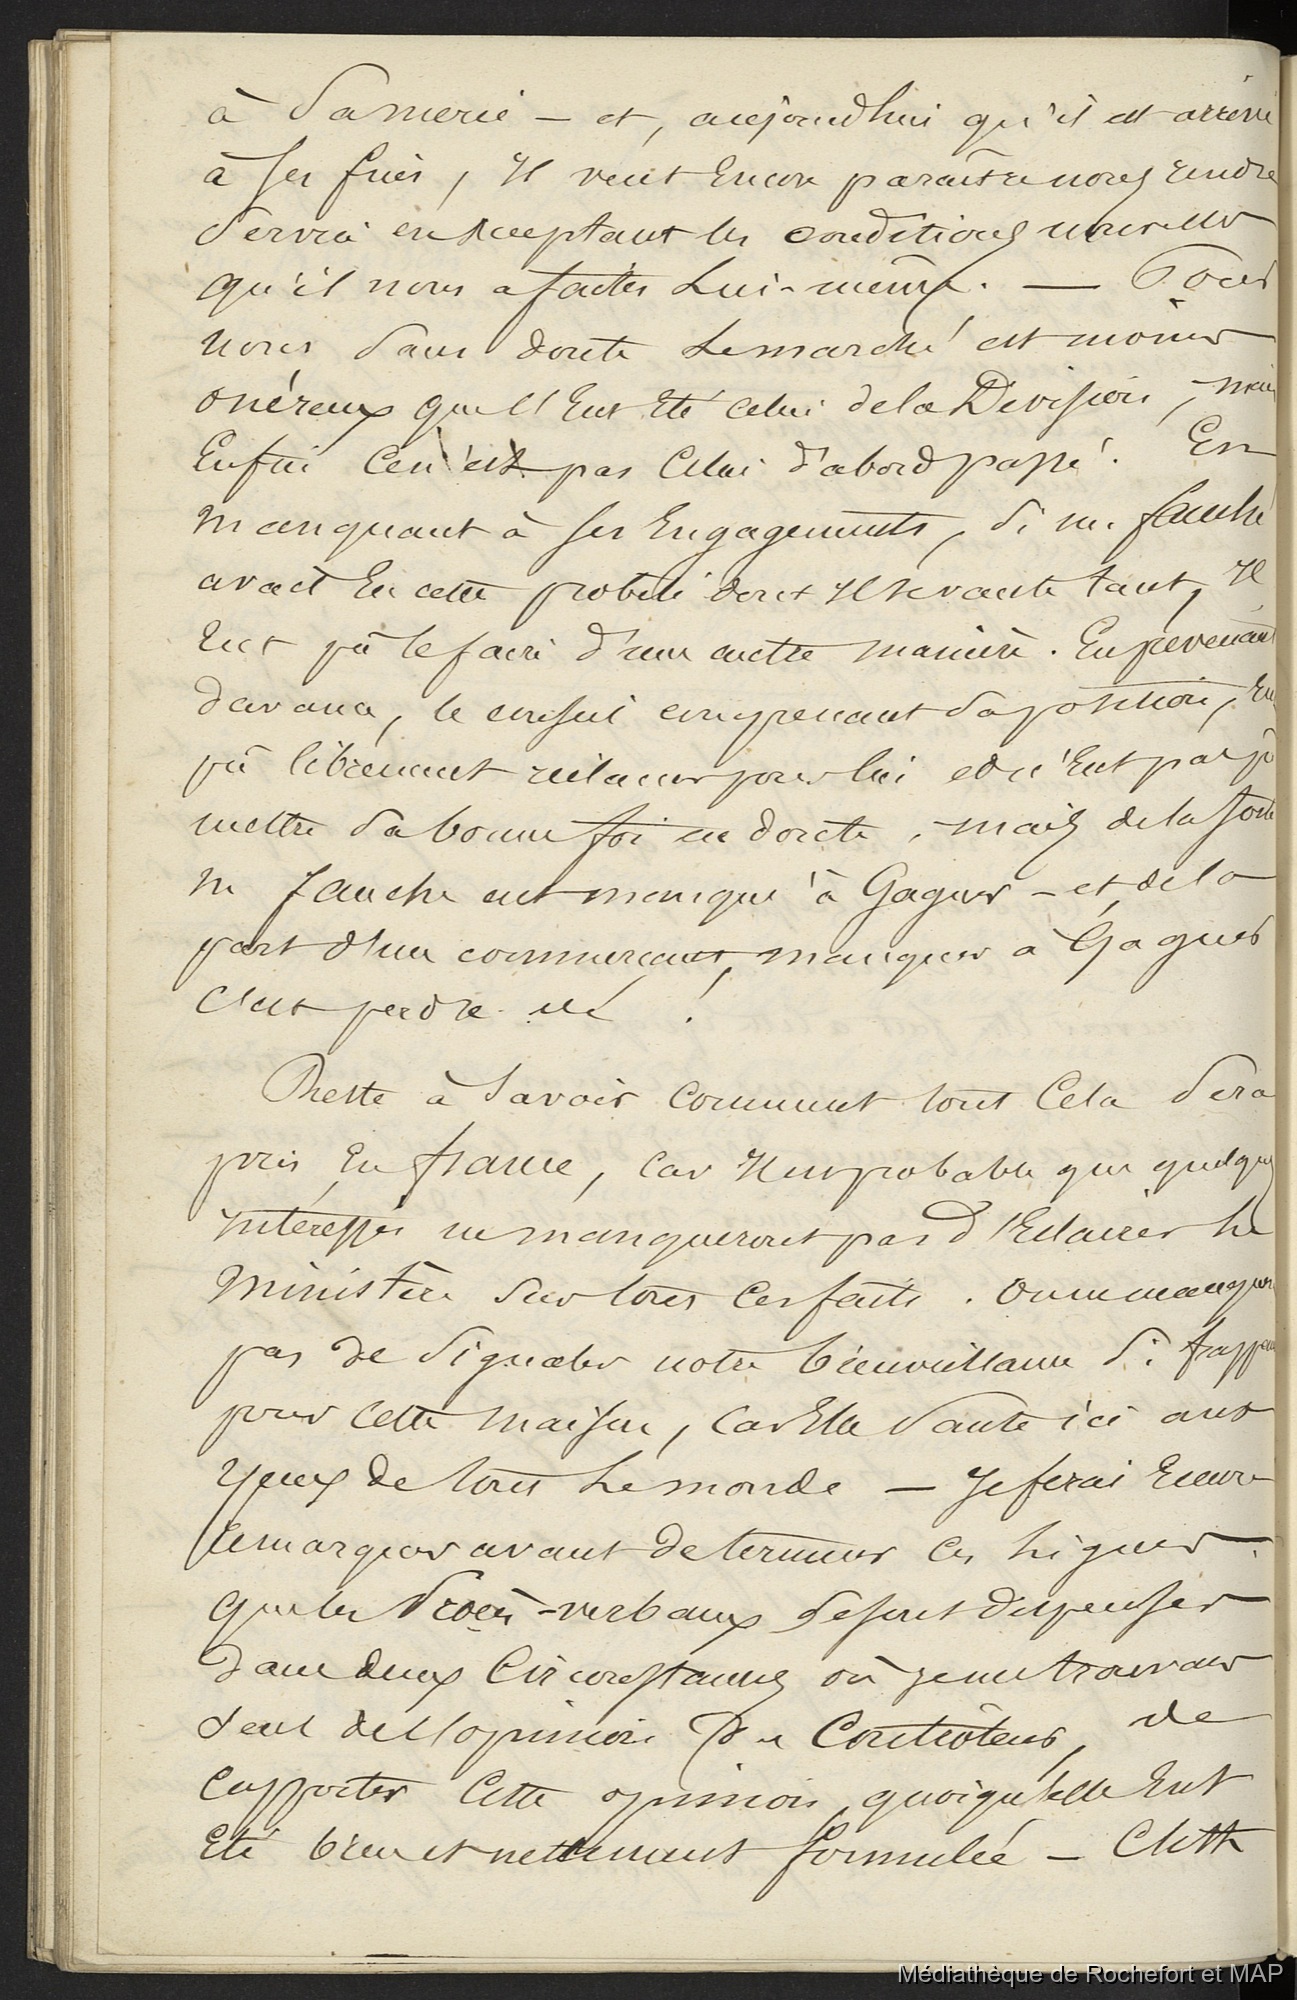 à Samerie – et, aujourd'hui qu'il est arrivé
à ses fins, Il veut Encore paraître nous rendre
Service en acceptant les conditions nouvelles
qu'il nous a faites Lui-même. — Pour
nous Sans doute Le marché est moins
onéreux que l'Eut Eté celui de la Division, mais
Enfin Ce n'est pas Celui d'abord passé. En
manquant à ses Engagements, Si m. fauche
avait Eu cette probité dont Il se vante tant, Il
Eut pû le faire d'une autre manière. En prévenant
d'avance, le conseil comprenant Sa position, Eut
pû librement réclamer pour lui et n'Eut pas pû
mettre Sa bonne foi en doute. mais de la Sorte
m fauche eut manqué à Gagner – et, de la
part d'un commerçant, manquer à Gagner
C'est perdre !
Reste à Savoir Comment tout Cela Sera
pris En france, Car Il est probable que quelques
intéressés ne manqueront pas d'Eclairer Le
Ministère Sur tous Ces faits. On ne manquera
pas de Signaler notre bienveillance Si frappante
pour Cette Maison, Car Elle Saute ici aux
Yeux de tout Le monde — Je ferai Encore
remarquer avant de terminer Ces Lignes
que les Procès-verbaux Se sont dispensés
dans deux Circonstances où je me trouvais
Seul de l'opinion du Contrôleur, de
rapporter Cette opinion, quoiqu'elle Eut
Eté bien et nettement formulée – Cette
Médiathèque de Rochefort et MAP